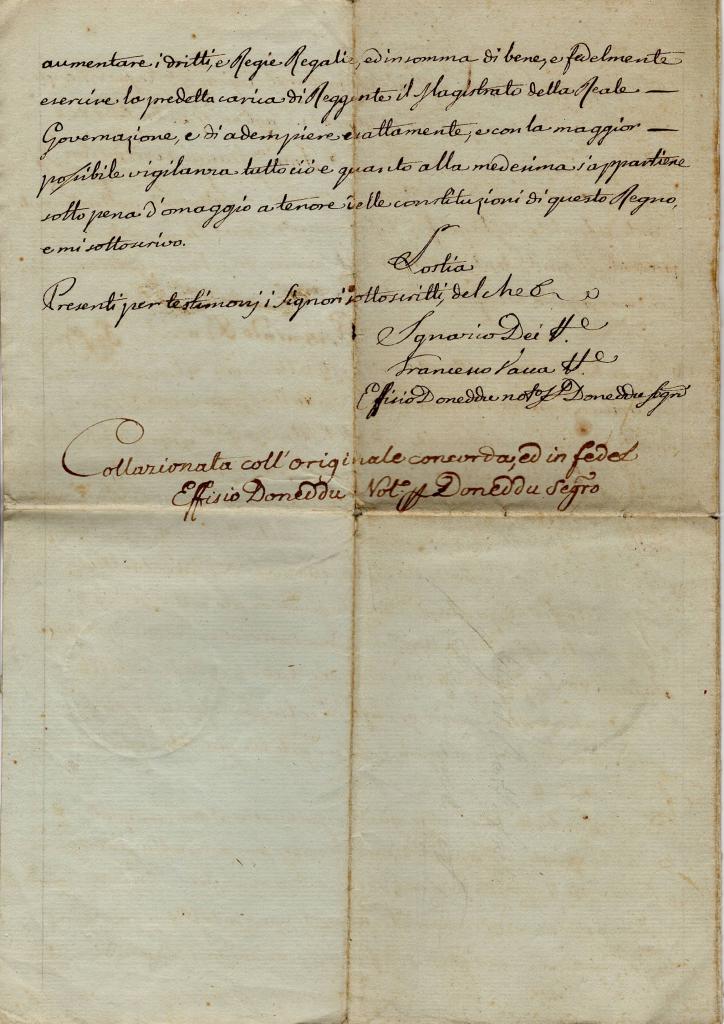 aumentare i dritti, e Regie Regalie, ed insomma di bene, e fedelmente
esercire la predetta carica di Reggente il Magistrato della Reale —
Governazione, e di adempiere esattamente, e con la maggior —
possibile vigilanza tutto ciò e quanto alla medesima s'appartiene
sotto pena d'omaggio a tenore delle constituzioni di questo Regno,
e mi sottoscrivo.
Lostia
Presenti per testimonj i Signori sottoscritti, del che &
Ignazio Dei
Francesco Vacca
Effisio Doneddu not.º Doneddu Segrº
Collazionata coll'originale concorda, ed in fede
Effisio Doneddu Not.º Doneddu Segrº